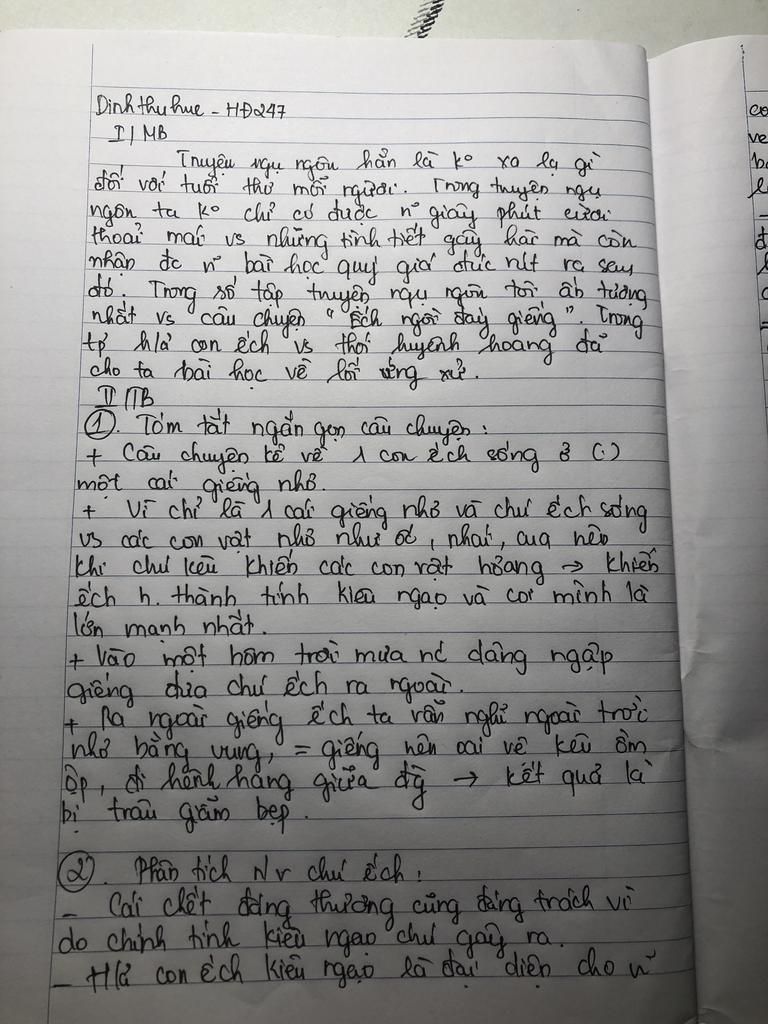 Dinh thu hue - HĐ247
I/ MB
Truyện ngụ ngôn hẳn là ko xa lạ gì
đối với tuổi thơ mỗi người. Trong truyện ngụ
ngôn ta ko chỉ có được n~ giây phút cười
thoải mái vs những tình tiết gây hài mà còn
nhận đc n~ bài học quý giá đúc rút ra sau
đó. Trong số tập truyện ngụ ngôn tôi ấn tượng
nhất vs câu chuyện "Ếch ngồi đáy giếng". Trong
h/ả con ếch vs thói huyênh hoang đã
cho ta bài học về lối ứng xử.
II/TB
①. Tóm tắt ngắn gọn câu chuyện:
+ Câu chuyện kể về 1 con ếch sống ở (.)
một cái giếng nhỏ.
+ Vì chỉ là 1 cái giếng nhỏ và chú ếch sống
vs các con vật nhỏ như ốc, nhái, cua nên
khi chú kêu khiến các con vật hoảng → khiến
ếch h. thành tính kiêu ngạo và coi mình là
lớn mạnh nhất.
+ Vào một hôm trời mưa nc dâng ngập
giếng đưa chú ếch ra ngoài.
+ Ra ngoài giếng ếch ta vẫn nghĩ ngoài trời
nhỏ bằng vung, = giếng nên oai vê kêu ồm
ộp, đi hênh hang giữa đg → kết quả là
bị trâu giẫm bẹp.
②. Phân tích Nv chú ếch:
- Cái chết đáng thương cũng đáng trách vì
do chính tính kiêu ngạo chú gây ra.
- H/ả con ếch kiêu ngạo là đại diện cho n~
co
ve